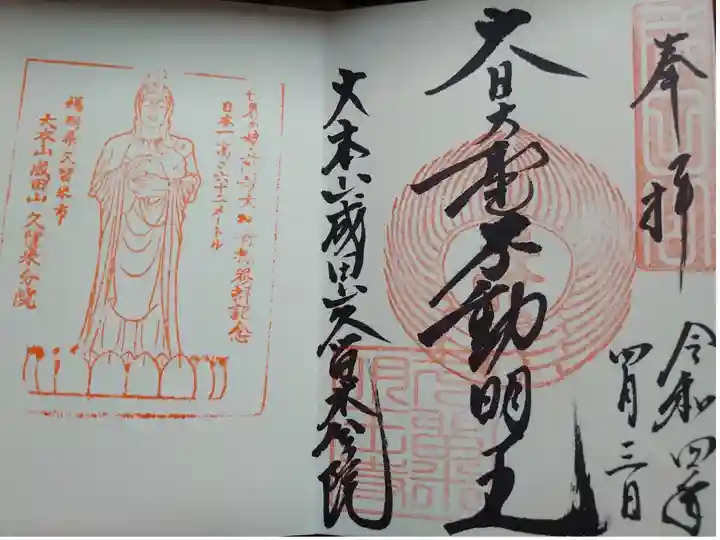 奉拝
令和四年
四月三日
大日大聖不動明王
大本山成田山久留米分院
日本一高さ六十二メートル
福岡県久留米市
大本山成田山久留米分院